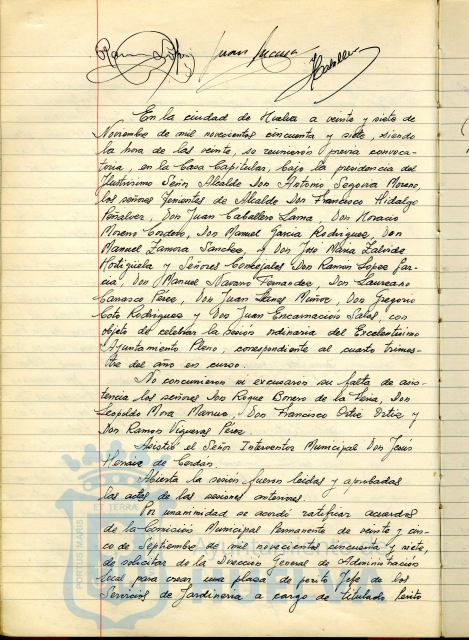 En la ciudad de Huelva a veinte y siete de
Noviembre de mil novecientos cincuenta y siete, siendo
la hora de las veinte, se reunieron previa convoca-
toria, en la Casa Capitular, bajo la presidencia del
Ilustrisimo Señor Alcalde Don Antonio Segovia Moreno,
los señores Tenientes de Alcalde Don Francisco Hidalgo
Peñalver, Don Juan Caballero Lama, Don Horacio
Moreno Cordero, Don Manuel Garcia Rodriguez, Don
Manuel Zamora Sanchez, y Don José Maria Zalvide
Hortigüela y Señores Concejales Don Ramon Lopez Gar-
cia, Don Manuel Navarro Fernandez, Don Laureano
Carrasco Pérez, Don Juan Llanes Muñoz, Don Gregorio
Coto Rodriguez y Don Juan Encarnación Salas, con
objeto de celebrar la sesión ordinaria del Excelentisimo
Ayuntamiento Pleno, correspondiente al cuarto trimes-
tre del año en curso.
No concurrieron ni excusaron su falta de asis-
tencia los señores Don Roque Borrero de la Feria, Don
Leopoldo Mora Don Francisco Ortiz Ortiz y
Don Ramon Vigueras Pérez.
Asistió el Señor Interventor Municipal Don Jesús
de
Abierta la sesión fueron leidas y aprobadas
las actas de las sesiones anteriores.
Por unanimidad se acordó ratificar acuerdos
de la Comisión Municipal Permanente de veinte y cin-
co de Septiembre de mil novecientos cincuenta y siete,
de solicitar de la Direccion General de Administración
Local para crear una plaza de perito Jefe de los
Servicios de Jardineria a cargo de titulado Perito
PORTUS MARIS
ET TERRAE